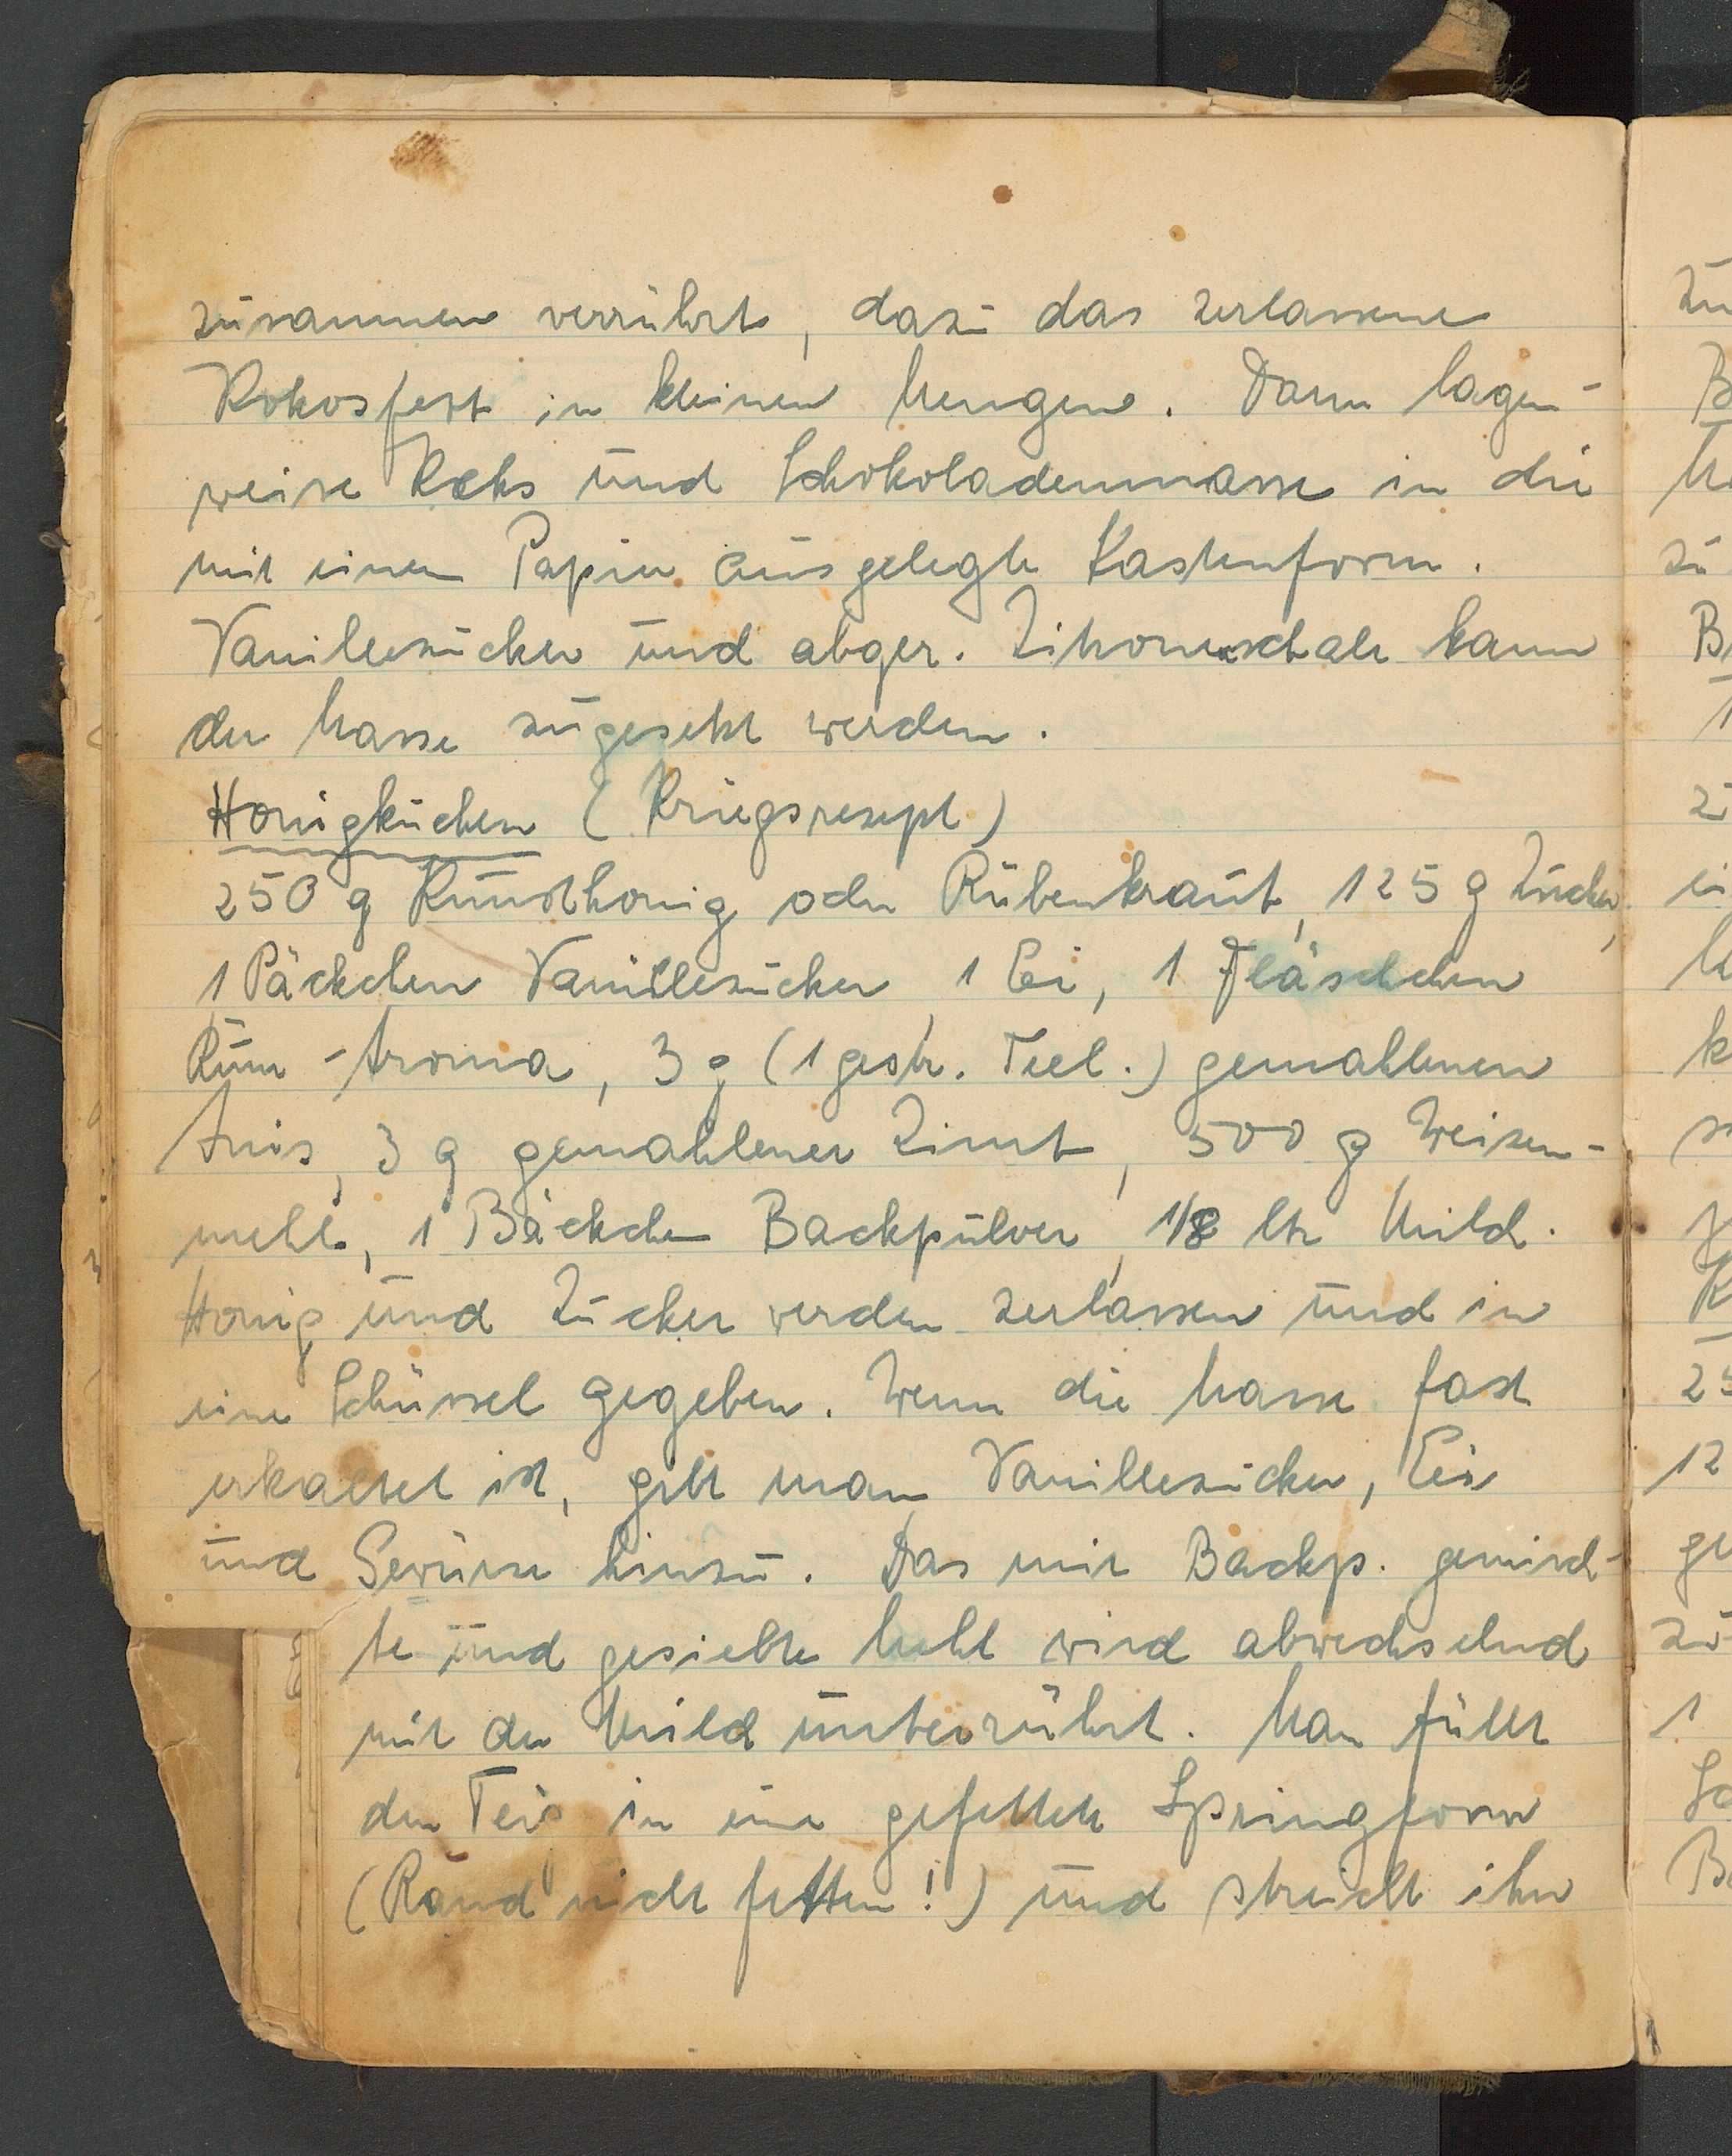 zusammen verrührt, dazu das zerlassene
Kokosfett in kleinen Mengen. Dann lagen-
weise Keks und Schokoladenmasse in die
mit einem Papier ausgelegte Kastenform.
Vanillezucker und abger. Zitronenschale kann
der Masse zugesetzt werden.
Honigkuchen (Kriegsrezept)
250 g Kunsthonig oder Rübenkraut, 125 g Zucker,
1 Päckchen Vanillezucker, 1 Ei, 1 Fläschchen
Rum-Aroma, 3 g (1 gestr. Teel.) gemahlenen
Anis, 3 g gemahlener Zimt, 500 g Weizen-
mehl, 1 Bäckchen Backpulver, 1/8 ltr Milch.
Honig und Zucker werden zerlassen und in
eine Schüssel gegeben. Wenn die Masse fast
erkaltet ist, gibt man Vanillezucker, Eis
und Gewürze hinzu. Das mit Backp. gemisch-
te und gesiebte Mehl wird abwechselnd
mit der Milch unterrührt. Man füllt
den Teig in eine gefettete Springform
(Rand nicht fetten!) und streicht ihn